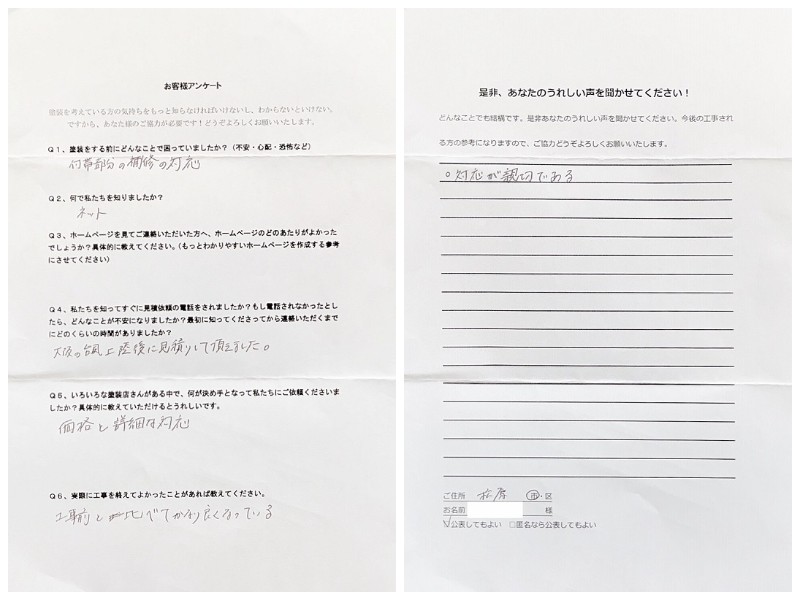 お客様アンケート
塗装を考えている方の気持ちをもっと知らなければいけないし、わからないといけない。
ですから、あなた様のご協力が必要です！どうぞよろしくお願いいたします。
Q１、塗装をする前にどんなことで困っていましたか？（不安・心配・恐怖など）
付帯部分の補修の対応
Q２、何で私たちを知りましたか？
ネット
Q３、ホームページを見てご連絡いただいた方へ、ホームページのどのあたりがよかった
でしょうか？具体的に教えてください。（もっとわかりやすいホームページを作成する参考
にさせてください）
Q４、私たちを知ってすぐに見積依頼の電話をされましたか？もし電話されなかったとし
たら、どんなことが不安になりましたか？最初に知ってくださってから連絡いただくまで
にどのくらいの時間がありましたか？
大阪の台風上陸後に見積りして頂きました。
Q５、いろいろな塗装店さんがある中で、何が決め手となって私たちにご依頼くださいま
したか？具体的に教えていただけるとうれしいです。
価格と詳細な対応
Q６、実際に工事を終えてよかったことがあれば教えてください。
工事前と比べてかなり良くなっている
是非、あなたのうれしい声を聞かせてください！
どんなことでも結構です。是非あなたのうれしい声を聞かせてください。今後の工事され
る方の参考になりますので、ご協力どうぞよろしくお願いいたします。
○対応が親切である
ご住所 松原 市・区
お名前 様
☑公表してもよい □匿名なら公表してもよい